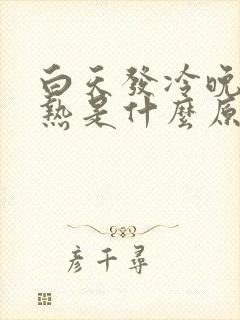 白天發冷晚
熱是什麼原
彥千尋